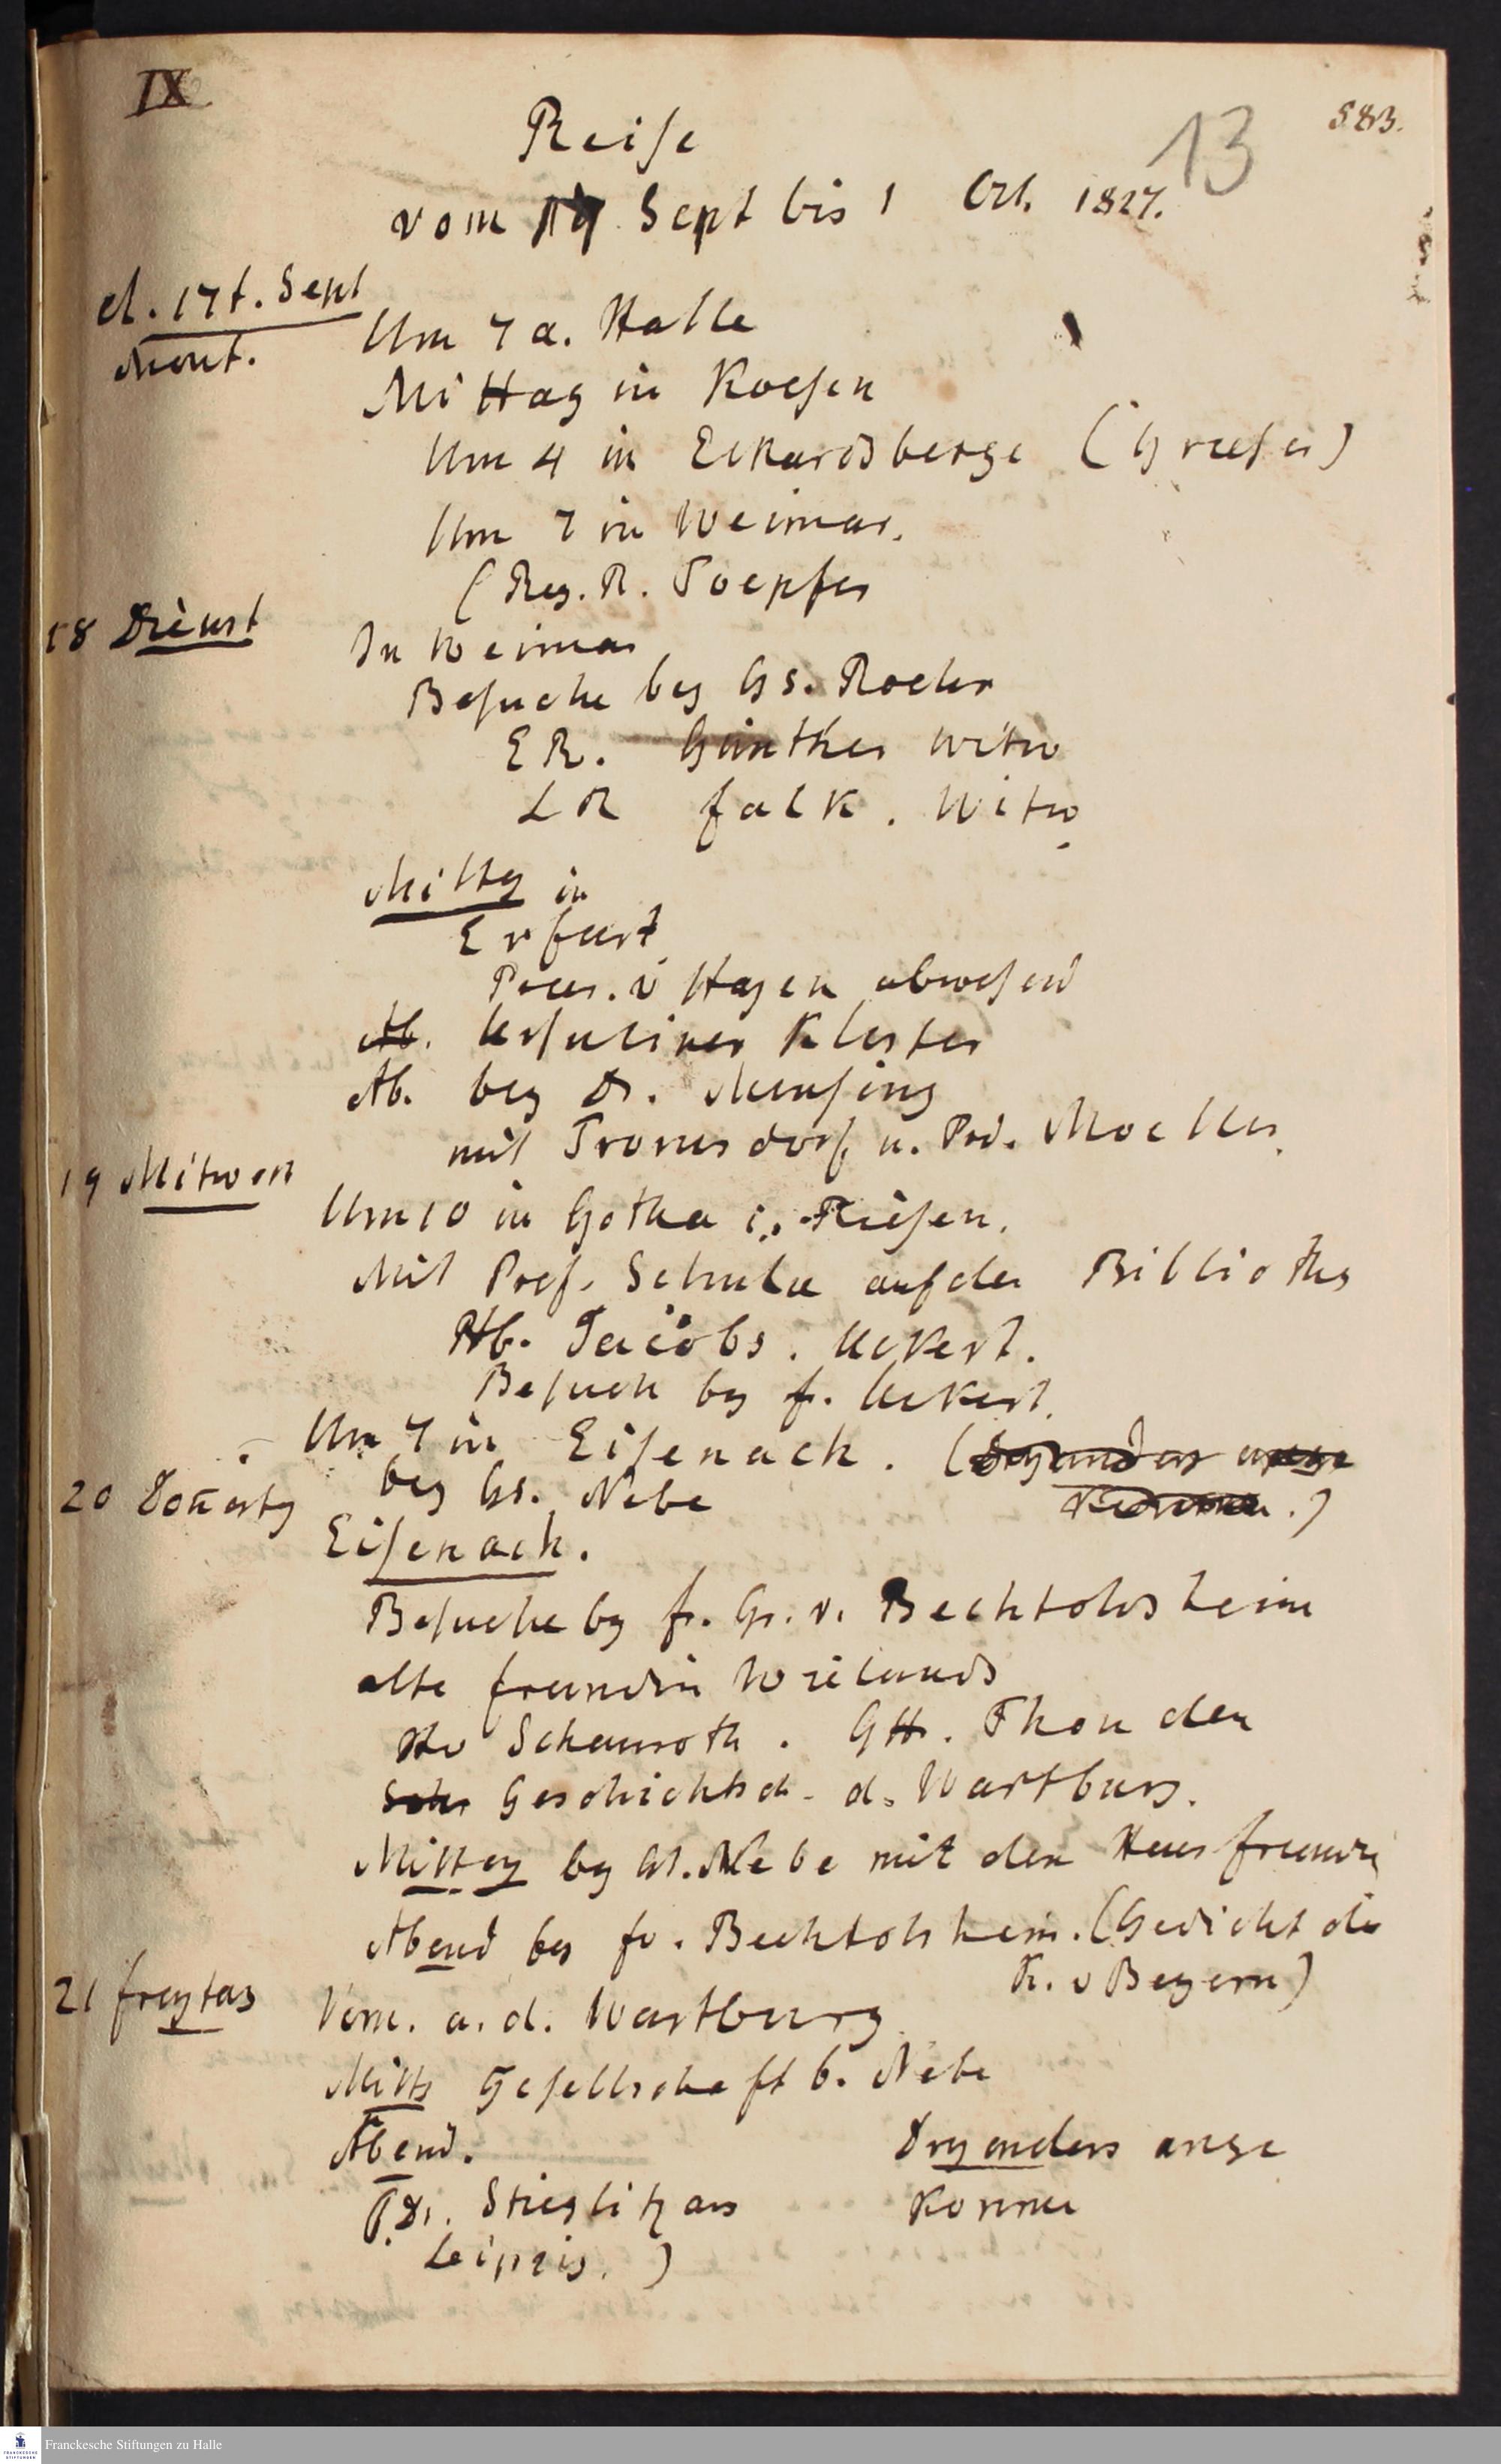 IX
583.
13
Reise
vom 17 Sept bis 1 Oct. 1827.
d. 17t. Sept
Mont.
Um 7 a. Halle
Mittag in Koesen
Um 4 in Eckardsberge
Um 7 in Weimar.
(Reg. R. Toepfer
18 Dienst
In Weimar
Besuche bey GS. Roehr
ER. Günther Witw
LR falk. Witw
Mittg in
Erfurt
v Hagen abwesend
Ab. Ursuliner Kloster
Ab. bey Dr. Mensing
mit Tromsdorf u. Moeller.
19 Mitwoch
Um 10 in Gotha i. Riesen.
Mit Prof. Schulze auf der Bibliothg
Jacobs. Uckert.
Besuch by fr. Uckert.
Um 7 in Eisenach. (Dryanders ange
kommen.)
bey GS. Nebe
20 Don̄erstg
Eisenach.
Besuche by fr. Gr. v. Bechtolsheim
alte freundin Wielands
Hv Schauroth. Thon der
Geschichtsch. d. Wartburg.
Mittag by GS. Nebe mit den Hausfreunden
Abend bey fr. Bechtolsheim. (Gedicht des
K. v Bayern)
21 freytag
Vorm. a. d. Wartburg
Mittg Gesellschaft b. Nebe
Abend. Dryanders ange
kommen
(Dr. Stieglitz aus
Leipzig.)